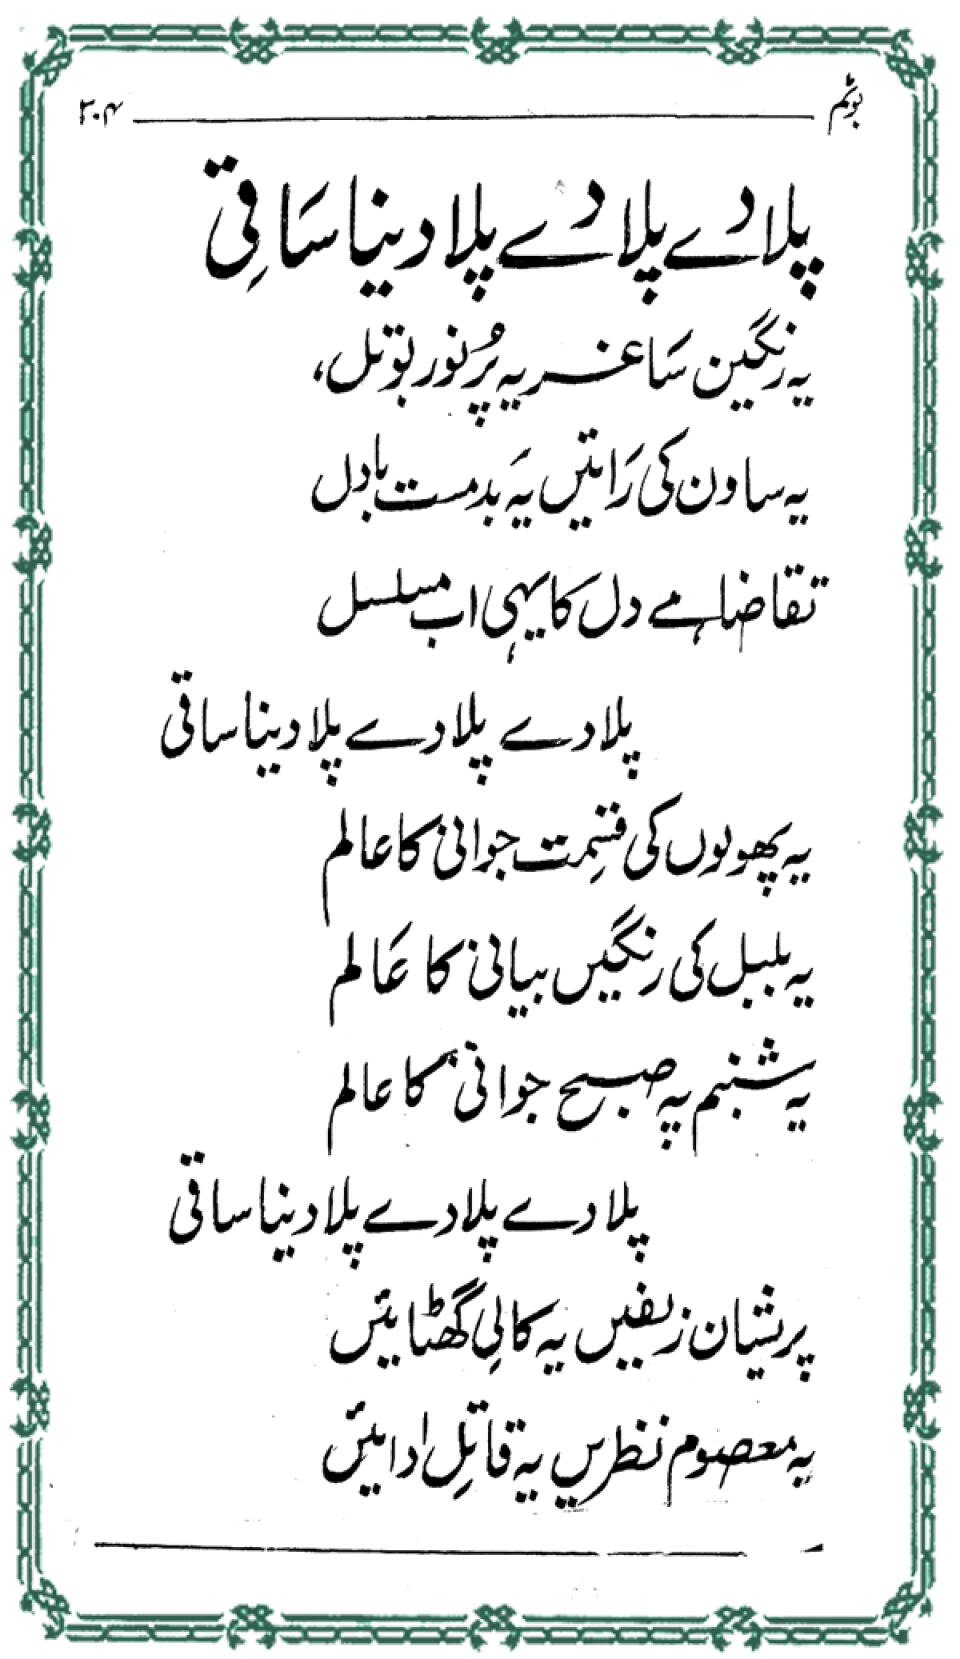 بوٹم ۲۰۴
پلا دے پلا دے پلا دینا ساقی
یہ رنگین ساغر یہ پُر نور بوتل،
یہ ساون کی راتیں یہ بدمست بادل
تقاضا ہے دل کا یہی اب مسلسل
پلا دے پلا دے پلا دینا ساقی
یہ پھولوں کی قسمت جوانی کا عالم
یہ بلبل کی رنگیں بیانی کا عالم
یہ شبنم پہ صبح جوانی کا عالم
پلا دے پلا دے پلا دینا ساقی
پریشان زلفیں یہ کالی گھٹائیں
یہ معصوم نظریں یہ قاتل ادائیں